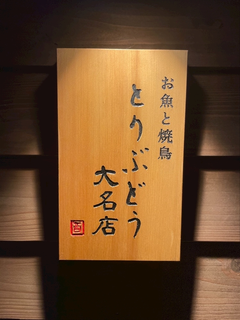 お魚と焼鳥
とりぶどう
大名店